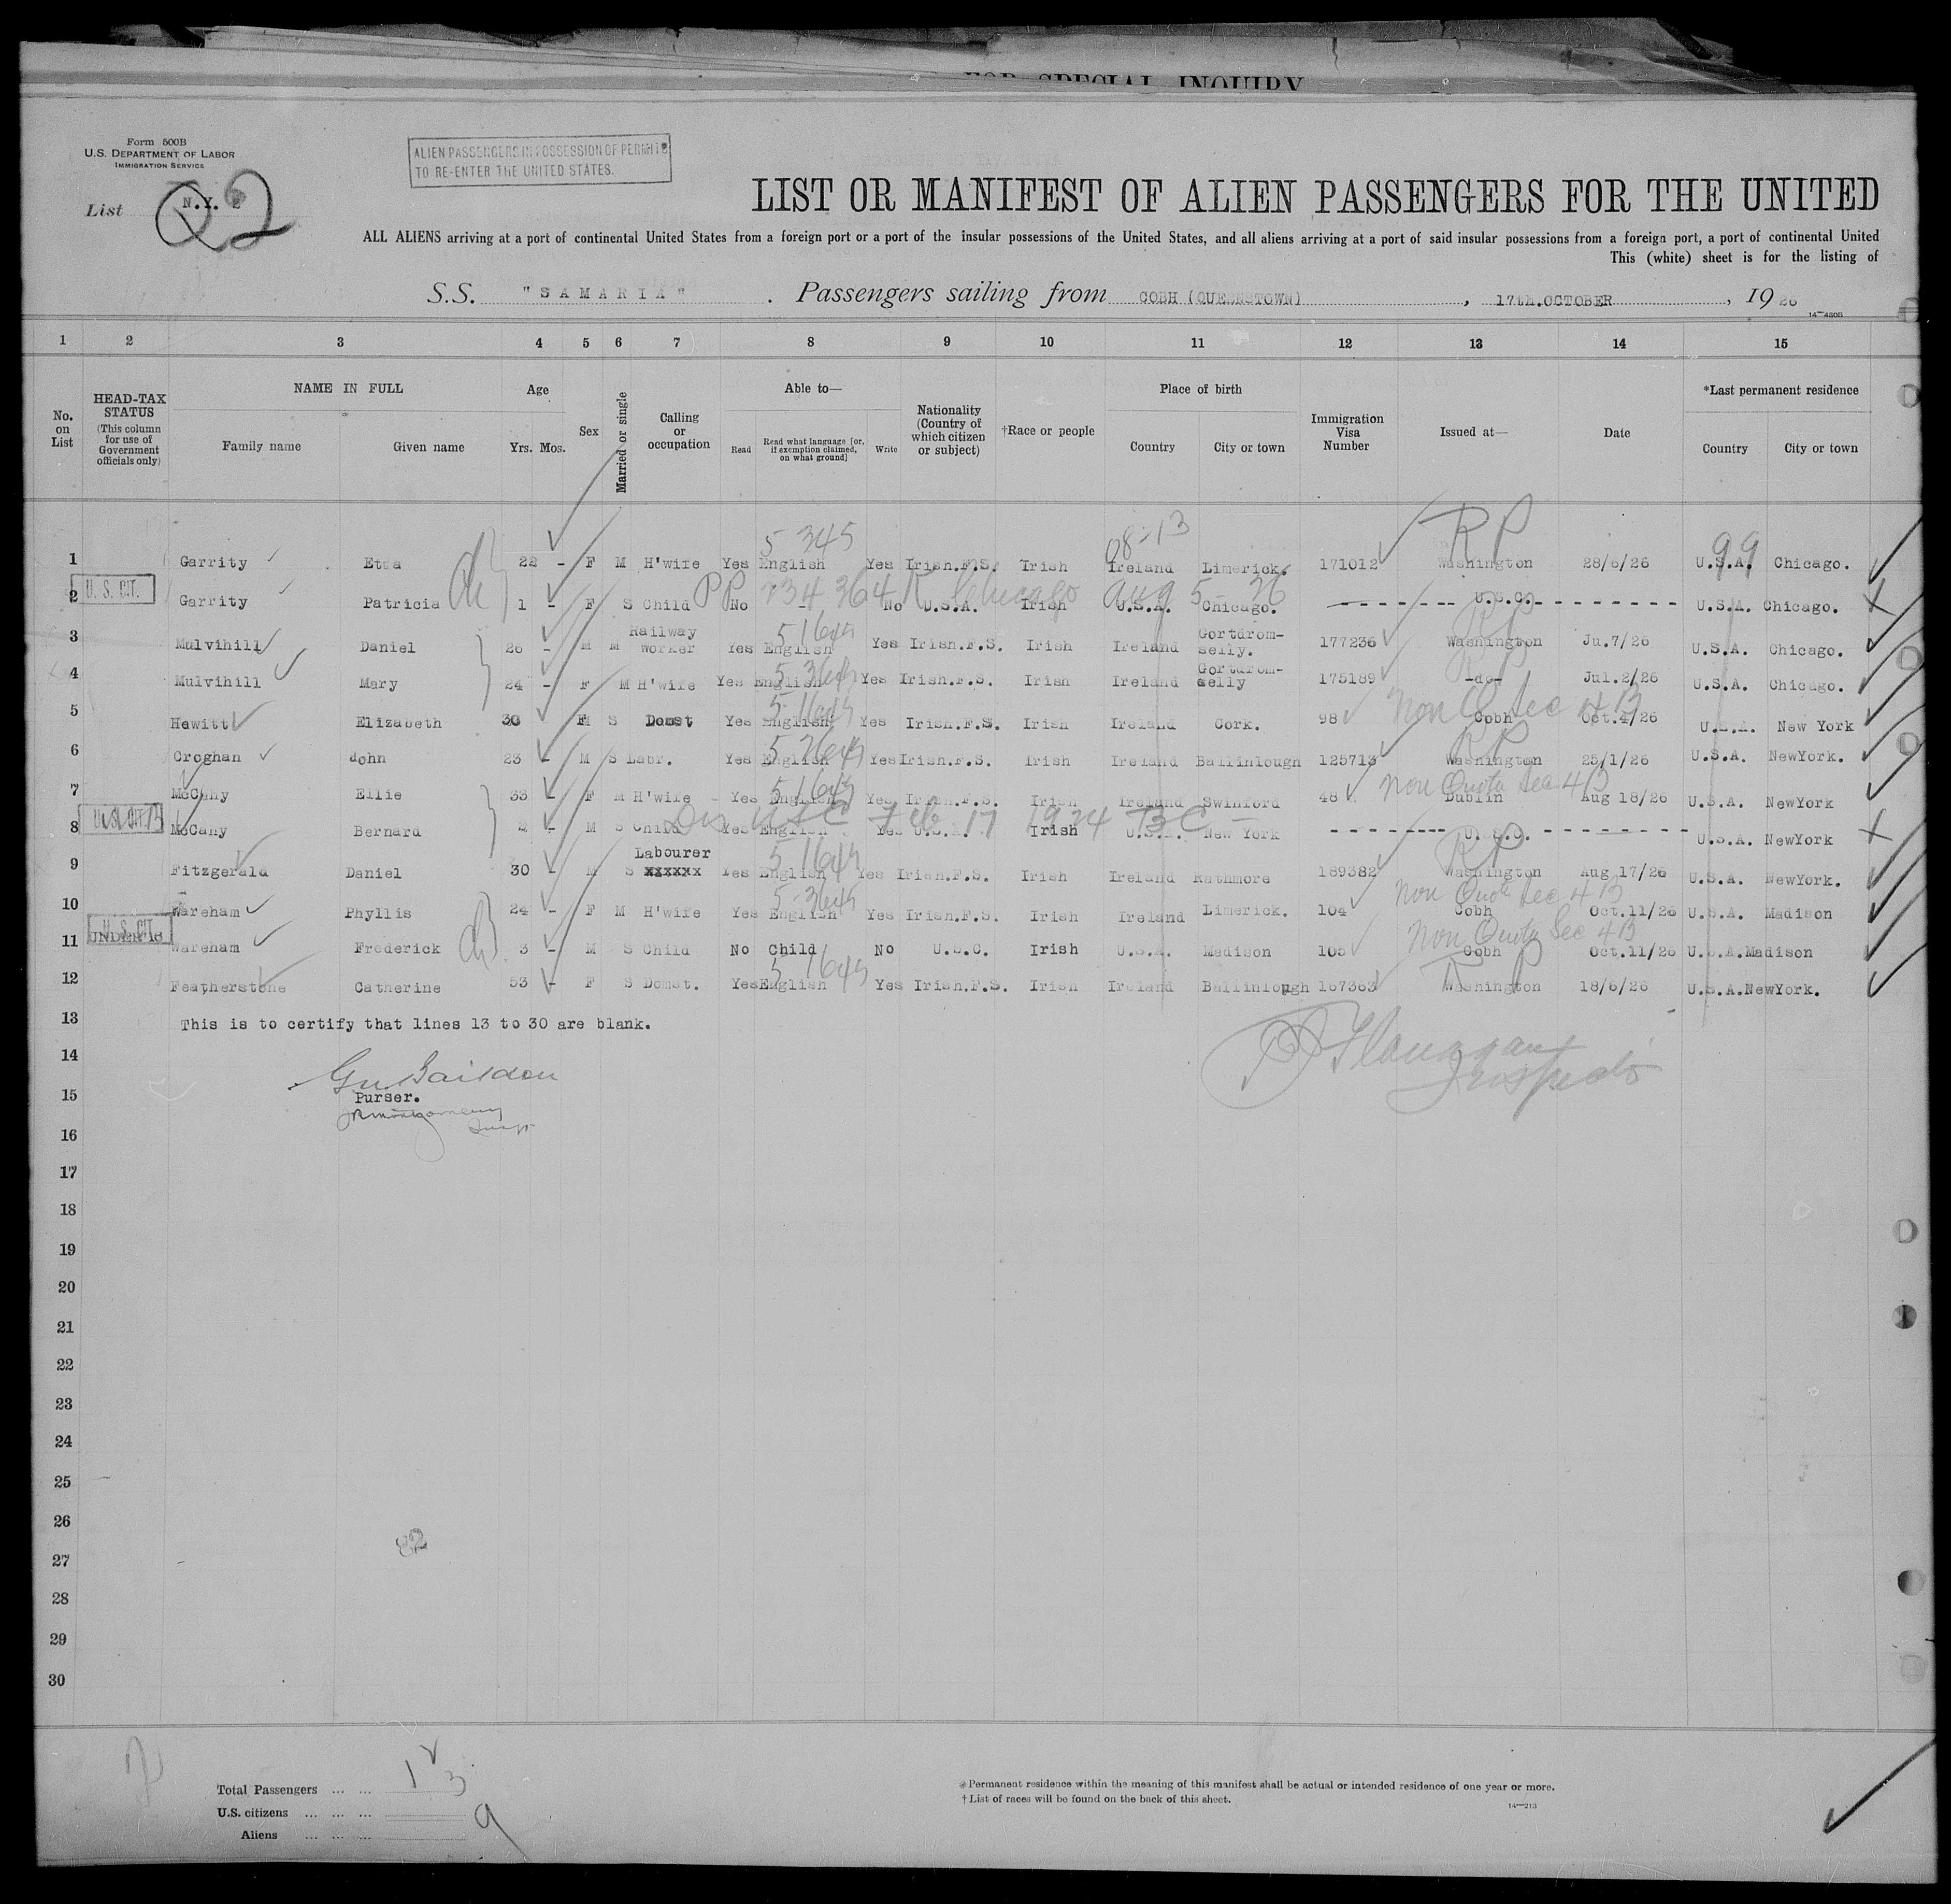 FOR SPECIAL INQUIRY
Form 500B
U.S. DEPARTMENT OF LABOR
IMMIGRATION SERVICE
ALIEN PASSENGERS IN POSSESSION OF PERMITS
TO RE-ENTER THE UNITED STATES.
List N.Y. 2
LIST OR MANIFEST OF ALIEN PASSENGERS FOR THE UNITED
ALL ALIENS arriving at a port of continental United States from a foreign port or a port of the insular possessions of the United States, and all aliens arriving at a port of said insular possessions from a foreign port, a port of continental United
This (white) sheet is for the listing of
S.S. "SAMARIA". Passengers sailing from COBH (QUEENSTOWN), 17th. OCTOBER, 1926
14—480B
1 2 3 4 5 6 7 8 9 10 11 12 13 14 15
No. on List
HEAD-TAX STATUS (This column for use of Government officials only)
NAME IN FULL
Family name Given name
Age
Yrs. Mos.
Sex
Married or single
Calling or occupation
Able to—
Read Read what language [or, if exemption claimed, on what ground] Write
Nationality (Country of which citizen or subject)
†Race or people
Place of birth
Country City or town
Immigration Visa Number
Issued at—
Date
*Last permanent residence
Country City or town
5 345 08-13 RP 99
1 Garrity Etta 22 - F M H'wife Yes English Yes Irish.F.S. Irish Ireland Limerick. 171012 Washington 28/6/26 U.S.A. Chicago.
U.S. CIT.
PP 234364 R Chicago Aug 5 - 26
2 Garrity Patricia 1 - F S Child No No U.S.A. Irish U.S.A. Chicago. U.S.C. U.S.A. Chicago.
3 Mulvihill Daniel 26 - M M Railway Worker Yes English Yes Irish.F.S. Irish Ireland Gortdrom-selly. 177236 Washington Ju.7/26 U.S.A. Chicago.
4 Mulvihill Mary 24 - F M H'wife Yes English Yes Irish.F.S. Irish Ireland Gortdrom-selly 175189 -do- Jul.2/26 U.S.A. Chicago.
Non Q Sec 4 B
5 Hewitt Elizabeth 30 F S Domst Yes English Yes Irish.F.S. Irish Ireland Cork. 98 Cobh Oct.4/26 U.S.A. New York
RP
6 Croghan John 23 - M S Labr. Yes English Yes Irish.F.S. Irish Ireland Ballinlough 125713 Washington 25/1/26 U.S.A. NewYork.
Non Quota Sec 4 B
7 McCany Ellie 33 - F M H'wife - Yes English Yes Irish Ireland Swinford 48 Dublin Aug 18/26 U.S.A. NewYork
Feb 17 1924 BC
8 McCany Bernard 2 - M S Child Yes English Yes U.S.A. Irish U.S.A. New York U.S.C. U.S.A. NewYork
RP
9 Fitzgerald Daniel 30 - M S Labourer xxxxxx Yes English Yes Irish.F.S. Irish Ireland Rathmore 189382 Washington Aug 17/26 U.S.A. NewYork.
Non Quota Sec 4 B
10 Wareham Phyllis 24 - F M H'wife Yes English Yes Irish.F.S. Irish Ireland Limerick. 104 Cobh Oct.11/26 U.S.A. Madison
U.S. CIT.
UNDER 16
Non Quota Sec 4 B
11 Wareham Frederick 3 - M S Child No Child No U.S.C. Irish U.S.A. Madison 105 Cobh Oct.11/26 U.S.A. Madison
RP
12 Featherstone Catherine 53 - F S Domst. Yes English Yes Irish.F.S. Irish Ireland Ballinlough 167363 Washington 18/6/26 U.S.A. NewYork.
13 This is to certify that lines 13 to 30 are blank.
14
15 Purser.
16
17
18
19
20
21
22
23
24
25
26
82
27
28
29
30
Total Passengers ... ...
U.S. citizens ... ... ... 3
Aliens ... ... ... 9
*Permanent residence within the meaning of this manifest shall be actual or intended residence of one year or more.
†List of races will be found on the back of this sheet.
14—213